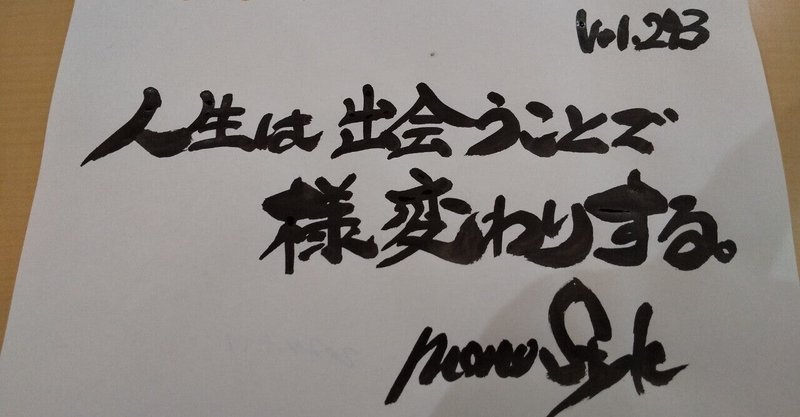 Vol.243
人生は出会うことで
様変わりする。
Style